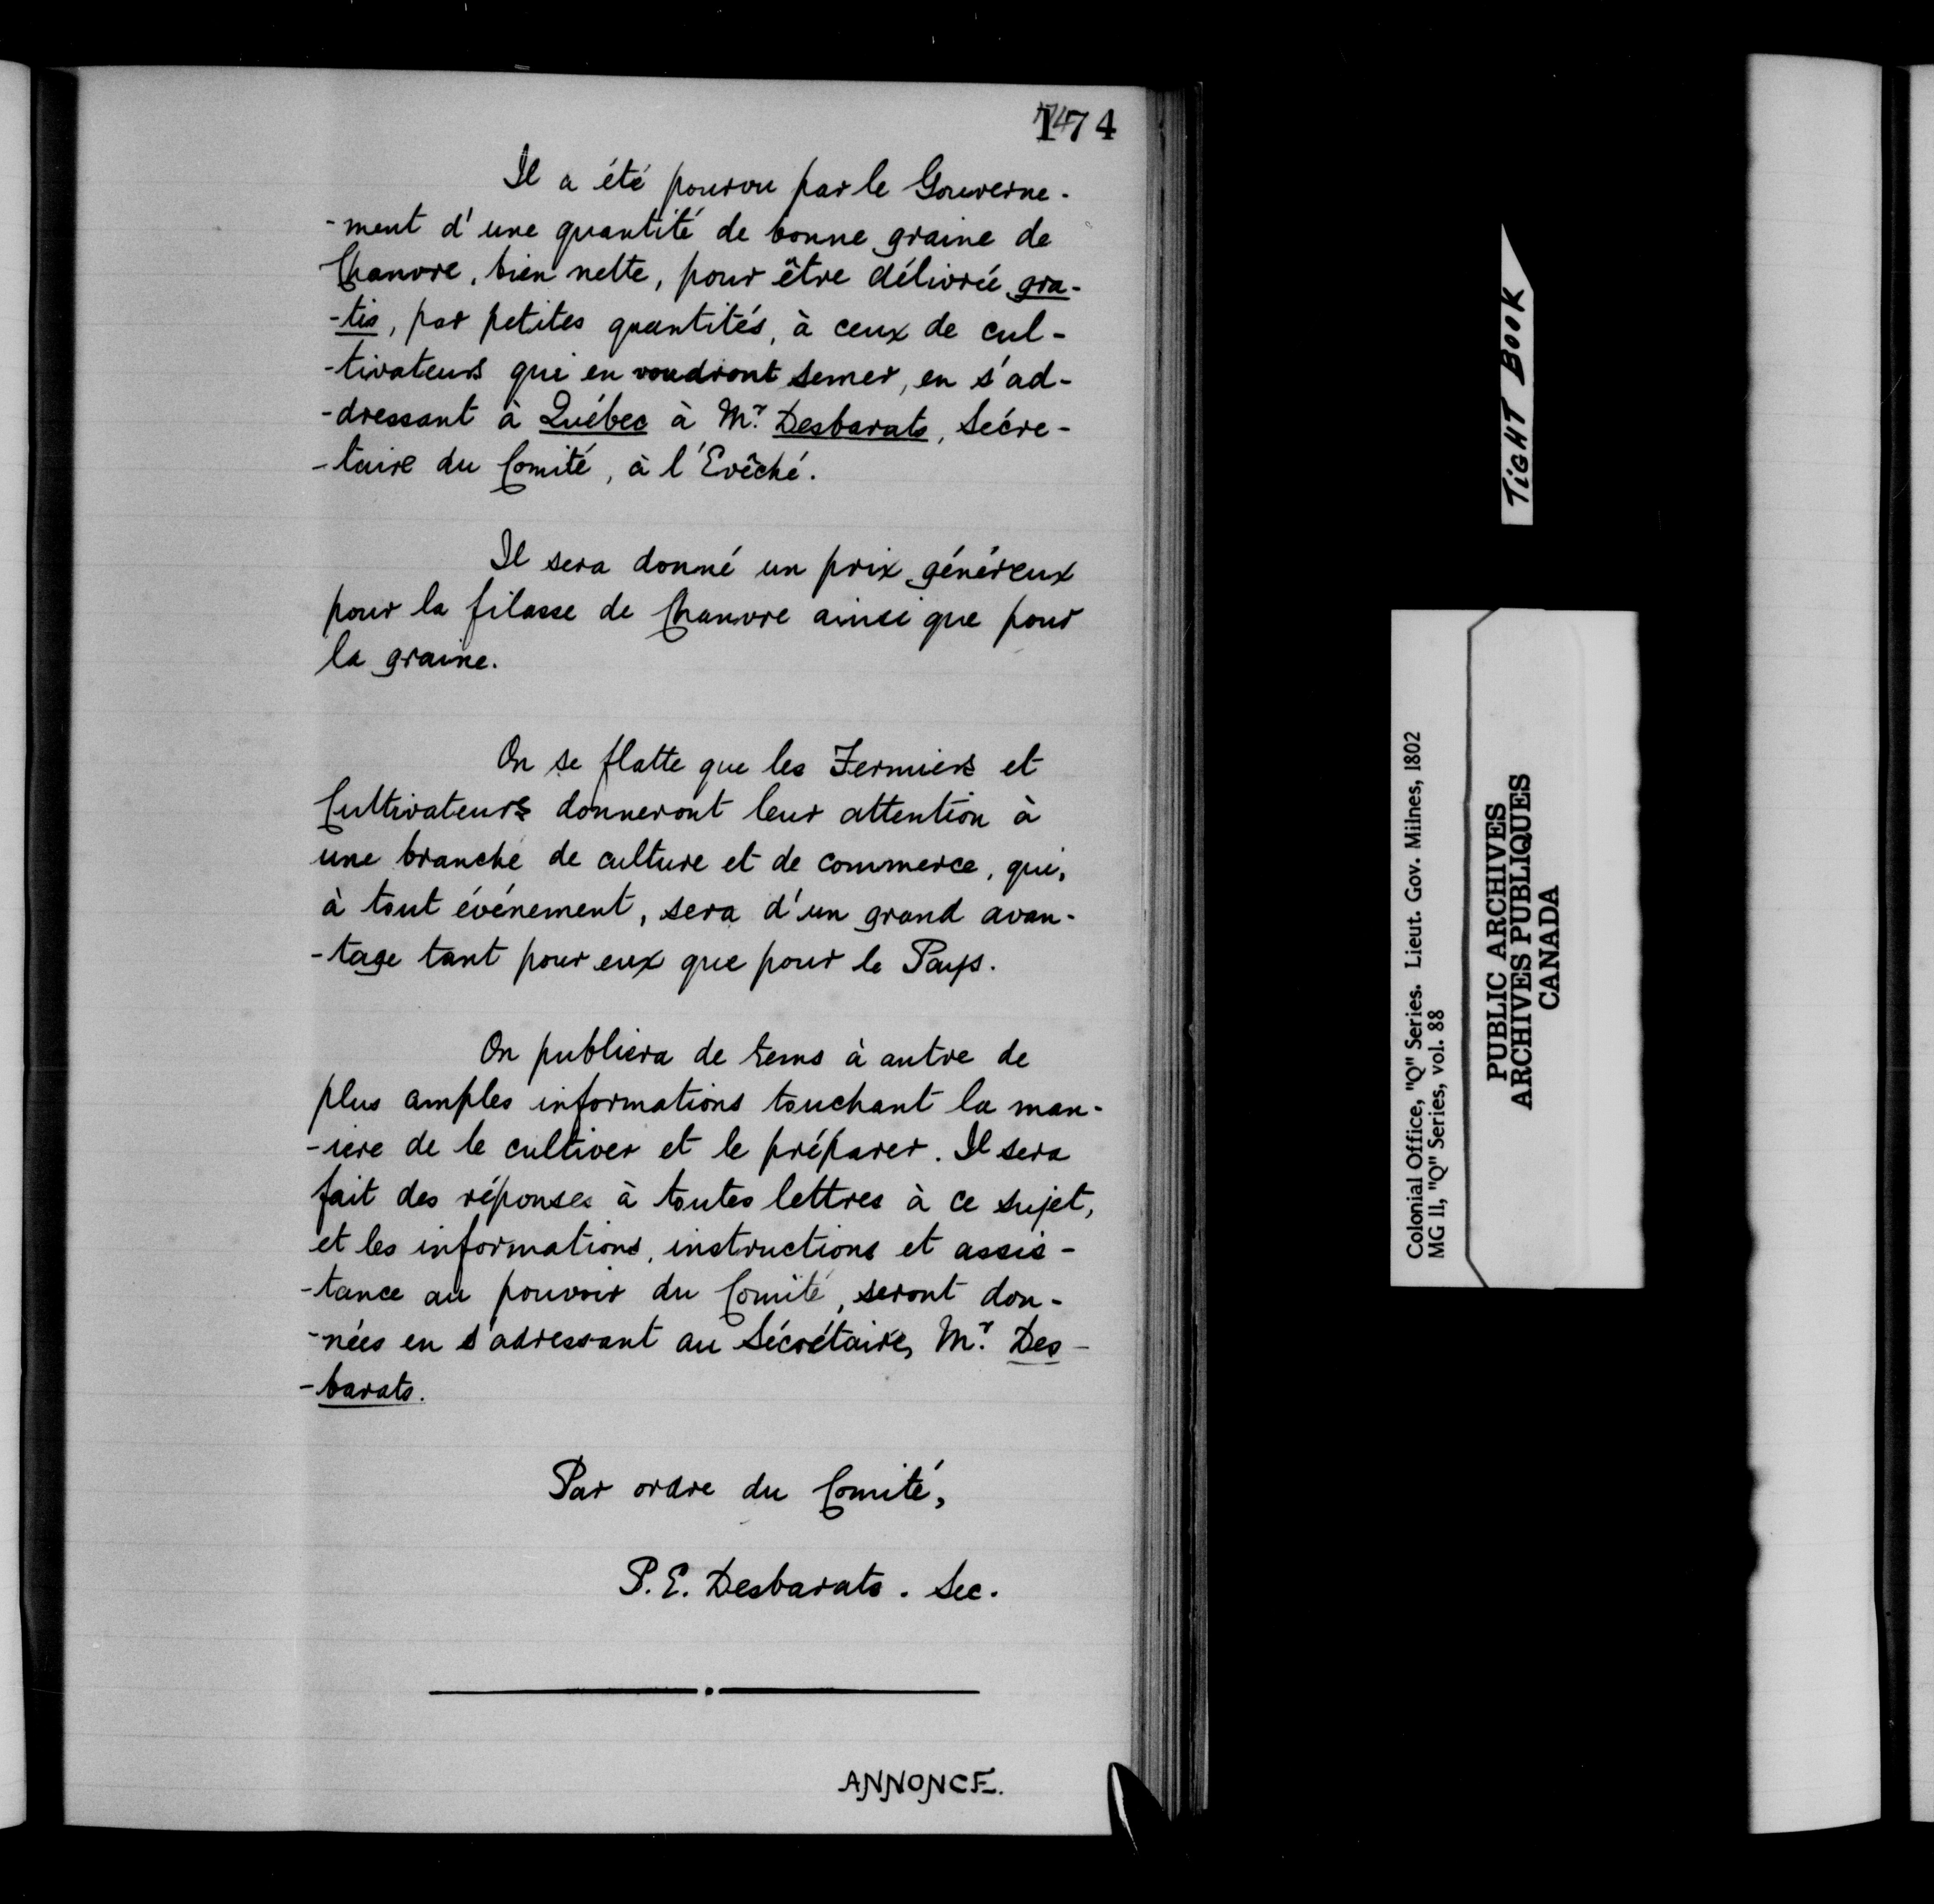 174
Il a été pourvu par le Gouverne-
-ment d'une quantité de bonne graine de
Chanvre, bien nette, pour être délivrée gra-
-tis, par petites quantités, à ceux de cul-
-tivateurs qui en voudront semer, en s'ad-
-dressant à Québec à Mr. Desbarats, Sécre-
-taire du Comité, à l'Evêché.
Il sera donné un prix généreux
pour la filasse de Chanvre ainsi que pour
la graine.
On se flatte que les Fermiers et
Cultivateurs donneront leur attention à
une branche de culture et de commerce, qui,
à tout événement, sera d'un grand avan-
-tage tant pour eux que pour le Pays.
On publiera de tems à autre de
plus amples informations touchant la man-
-iere de le cultiver et le préparer. Il sera
fait des réponses à toutes lettres à ce sujet,
et les informations, instructions et assis-
-tance au pouvoir du Comité, seront don-
-nées en s'adressant au Sécrétaire, Mr. Des-
-barats.
Par ordre du Comité,
P. E. Desbarats. Sec.
ANNONCE.
TIGHT BOOK
Colonial Office, "Q" Series. Lieut. Gov. Milnes, 1802
MG 11, "Q" Series, vol. 88
PUBLIC ARCHIVES
ARCHIVES PUBLIQUES
CANADA